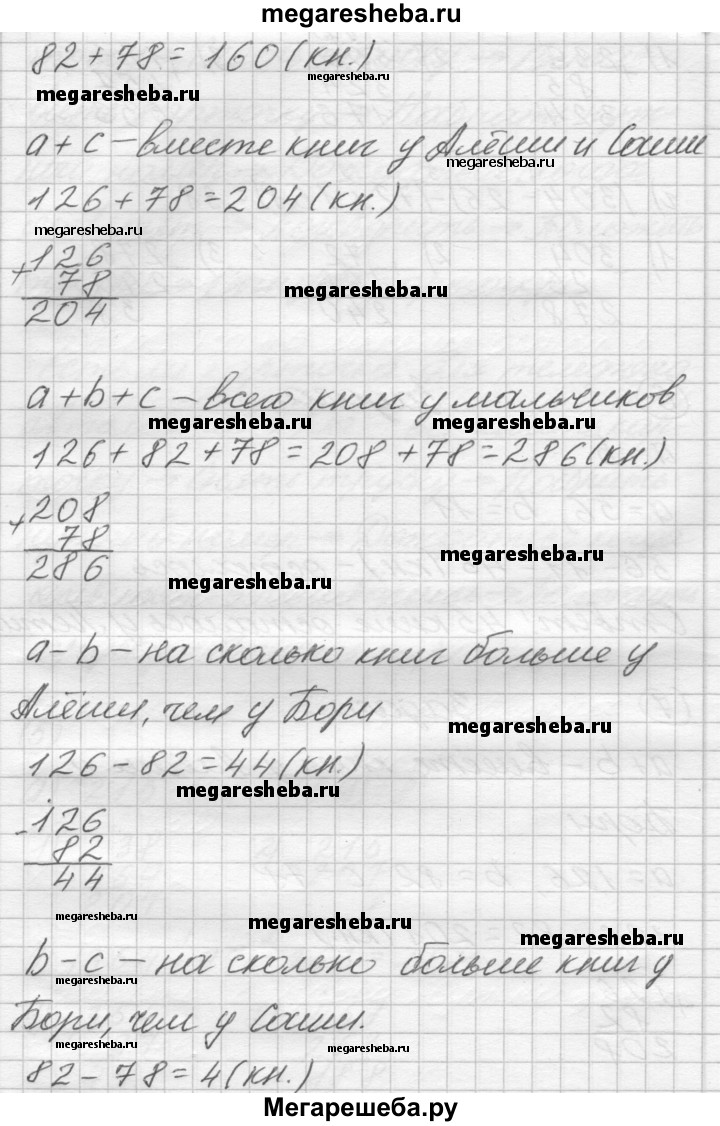 megaresheba.ru
82 + 78 = 160 (кн.)
megaresheba.ru
megaresheba.ru
a + c – вместе книг у Алёши и Саши
megaresheba.ru
126 + 78 = 204 (кн.)
megaresheba.ru
+ 126
78
204
megaresheba.ru
a + b + c – всего книг у мальчиков
megaresheba.ru megaresheba.ru
126 + 82 + 78 = 208 + 78 = 286 (кн.)
+ 208
78
286
megaresheba.ru
megaresheba.ru
a - b – на сколько книг больше у
Алёши, чем у Бори
megaresheba.ru
126 - 82 = 44 (кн.)
megaresheba.ru
- 126
82
44
megaresheba.ru
megaresheba.ru
megaresheba.ru
b - c – на сколько больше книг у
megaresheba.ru
Бори, чем у Саши.
megaresheba.ru
megaresheba.ru
82 - 78 = 4 (кн.)
Мегарешеба.ру